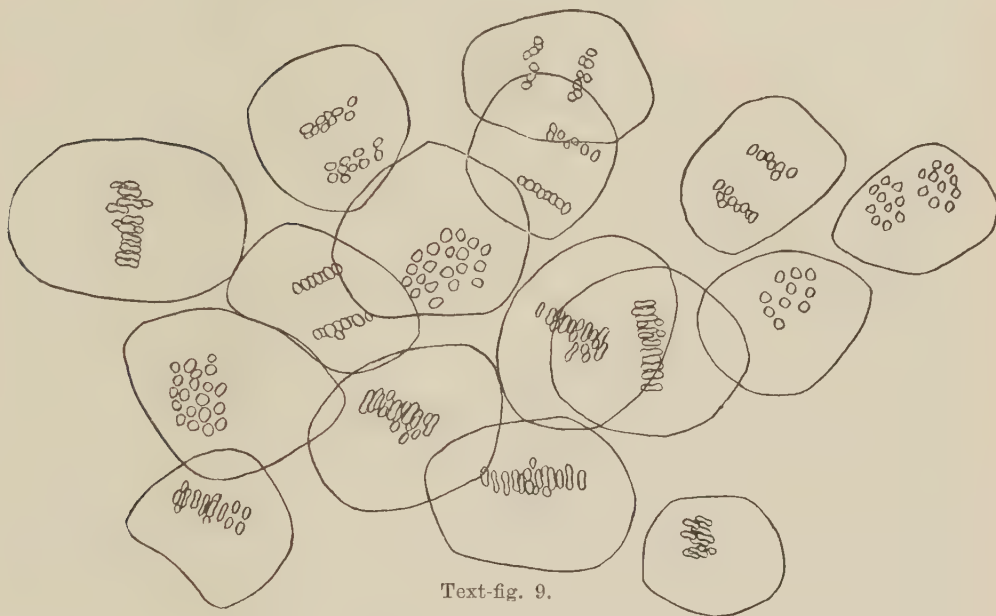 Text-fig. 9.